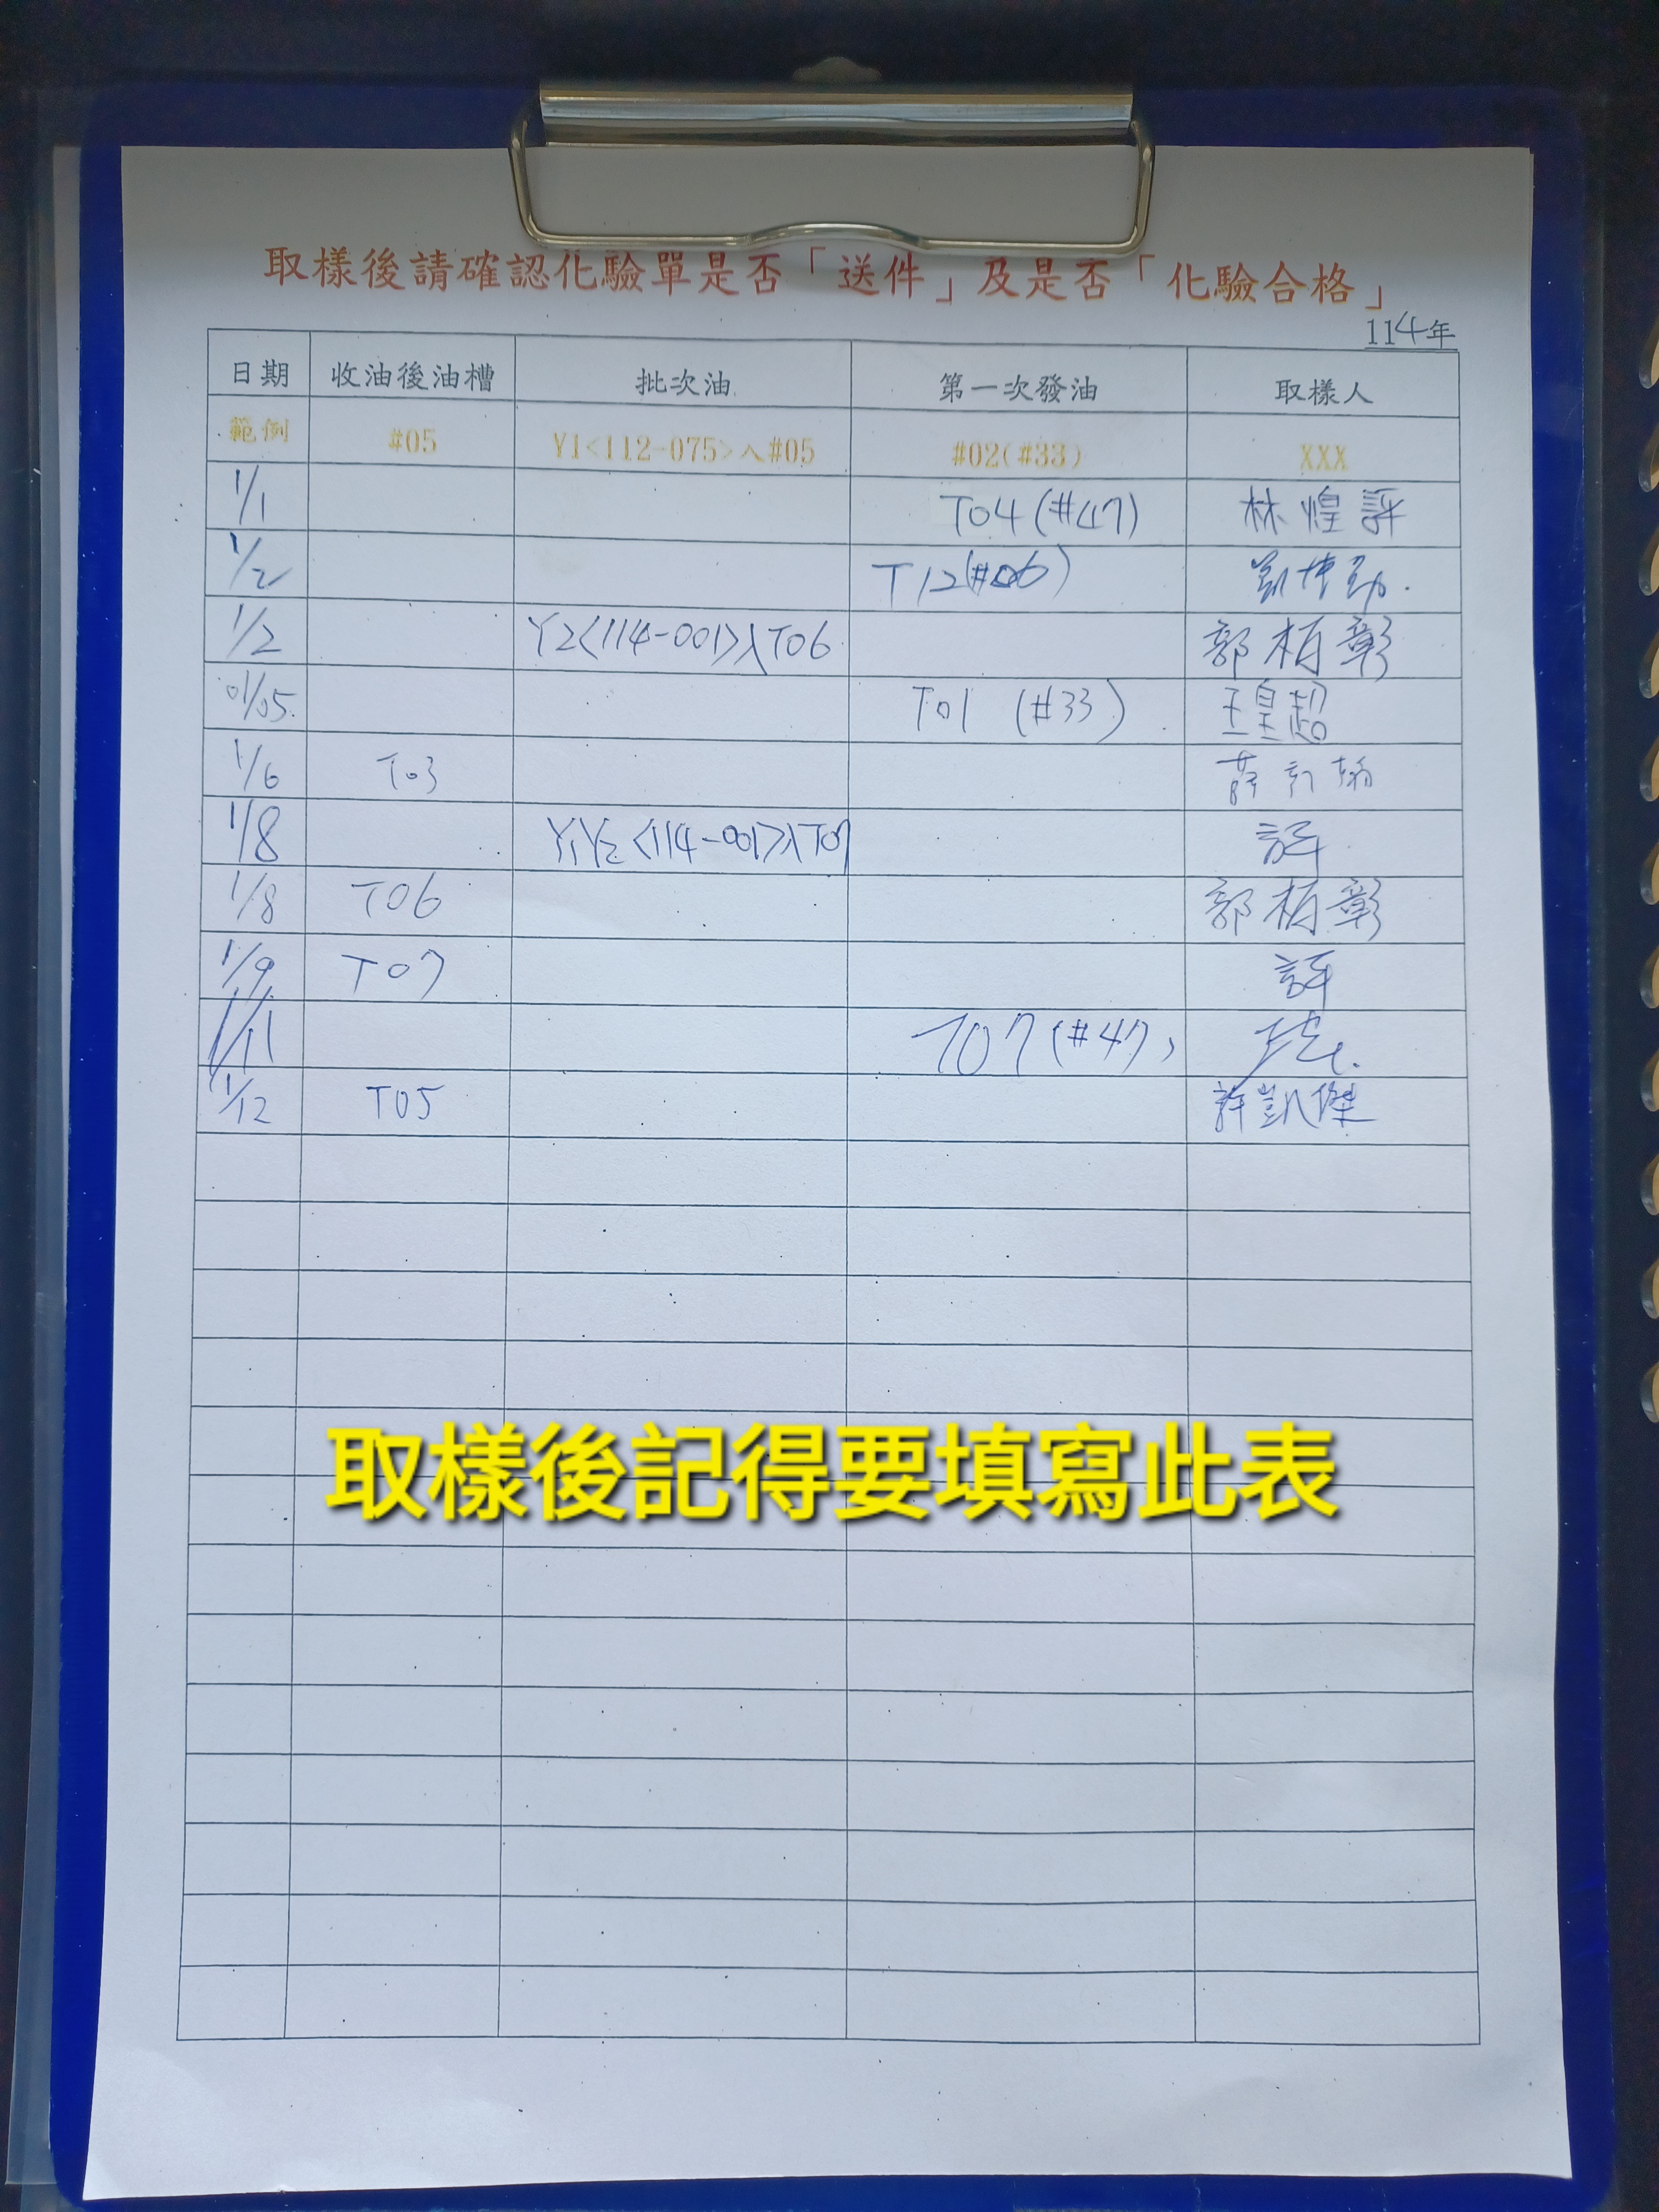 取樣後請確認化驗單是否「送件」及是否「化驗合格」
114年
日期 收油後油槽 批次油 第一次發油 取樣人
範例 #05 Y1<112-075>入#05 #02(#33) XXX
1/1 T04(#47) 林煌評
1/2 T12(#06)
1/2 Y2<114-001>入T06 郭柏彰
01/05. T01 (#33) 王皇超
1/6 T03 薛
1/8 <114-001>入T07 評
1/8 T06 郭柏彰
1/9 T07 評
1/11 T07(#47)
1/12 T05 許凱傑
取樣後記得要填寫此表